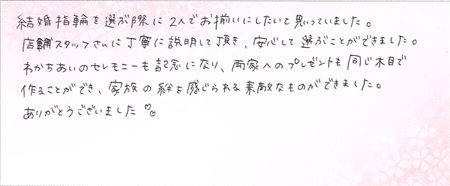 結婚指輪を選ぶ際に2人でお揃いにしたいと思っていました。
店舗スタッフさんに丁寧に説明して頂き、安心して選ぶことができました。
わかちあいのセレモニーも記念になり、両家へのプレゼントも同じ木目で
作ることができ、家族の絆を感じられる素敵なものができました。
ありがとうございました♡♡